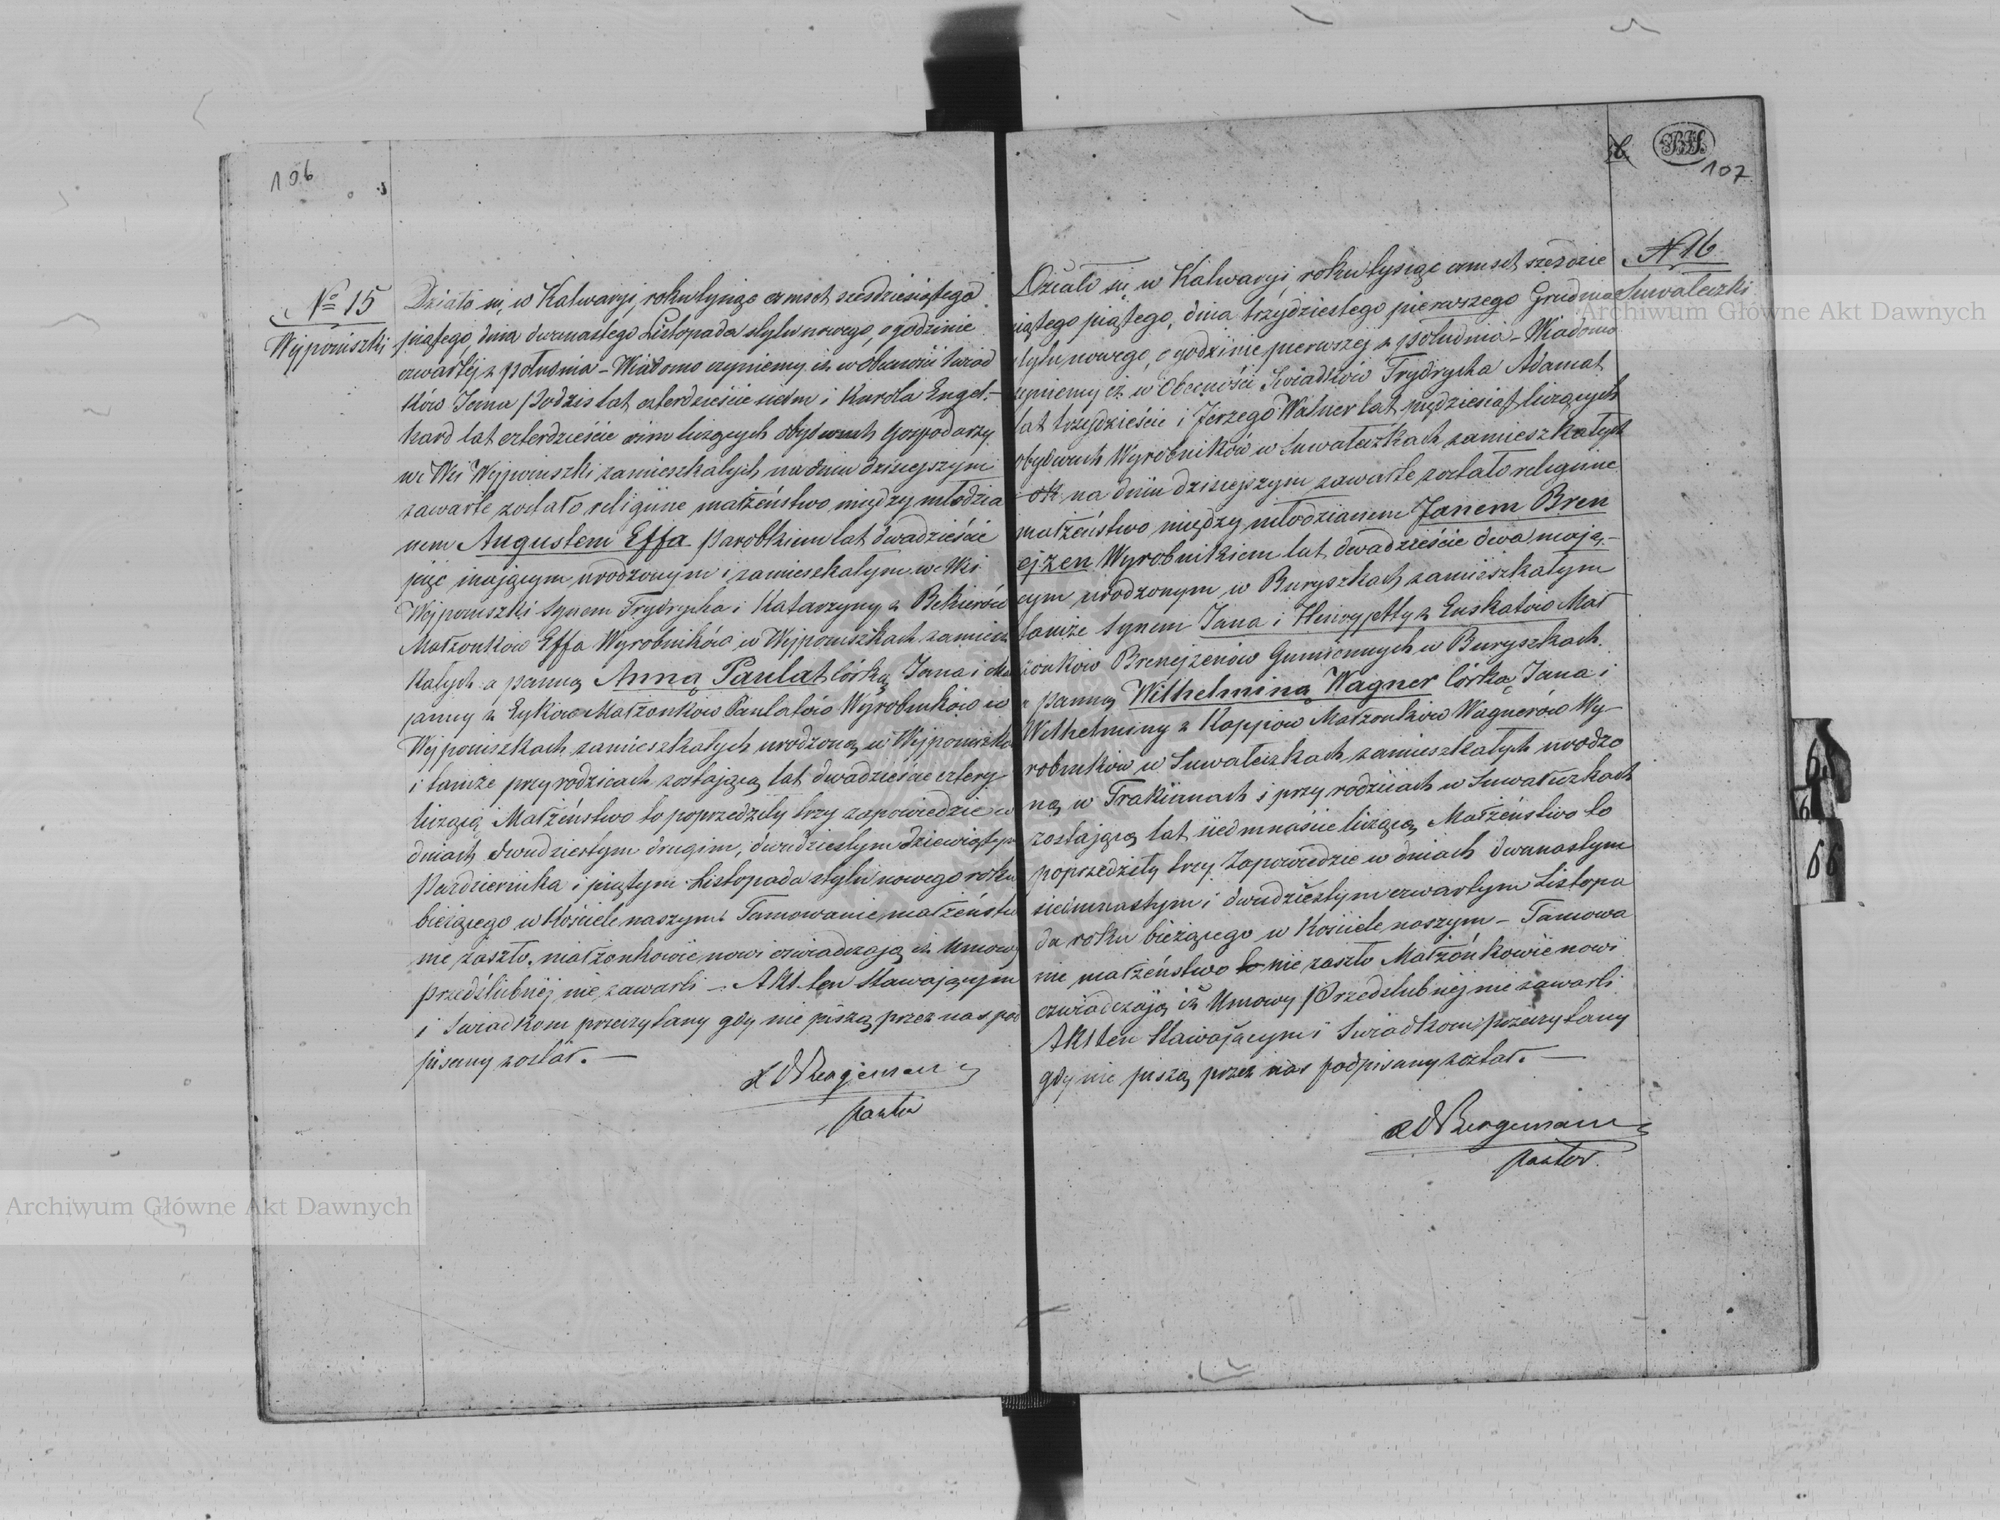 106
№ 15
Wejponiszki
Działo się w Kalwaryi, roku tysiąc ośmset sześdziesiątego
piątego, dnia dwanastego Listopada stylu nowego, o godzinie
czwartej z południa – Wiadomo czyniemy, iż w Obecności Świad
ków Jana lat czterdzieście siedm i Karola Engel-
hard lat czterdzieście ośm liczących obydwuch Gospodarzy
we Wsi Wejponiszki zamieszkałych, na dniu dzisiejszym
zawarte zostało religijne małżeństwo między młodzia
nem Augustem Effa Parobkiem lat dwadzieście
pięć mającym urodzonym i zamieszkałym we Wsi
Wejponiszki synem Frydrycha i Katarzyny z Bekierów
Małżonków Effa Wyrobników w Wejponiszkach zamiesz
kałych a panną Anną Paulat córką Jana i Ma
ryanny z Małżonków Paulatów Wyrobników w
Wejponiszkach zamieszkałych urodzoną w Wejponiszka
i tamże przy rodzicach zostającą lat dwadzieście cztery
liczącą Małżeństwo to poprzedziły trzy zapowiedzie w
dniach dwudziestym drugim, dwudziestym dziewiątym
Października i piątym Listopada stylu nowego roku
bieżącego w Kościele naszym. Tamowanie małżeństw
nie zaszło. małżonkowie nowi oświadczają iż Umowy
przedślubnej nie zawarli – Akt ten Stawającym
i Świadkom przeczytany gdy nie piszą przez nas pod
pisany został. –
Bergemann
Pastor
107
№ 16
Suwaleczki
Działo się w Kalwaryi roku tysiąc ośmset sześdzie
siątego piątego, dnia trzydziestego pierwszego Grudnia
stylu nowego, o godzinie pierwszej z południa – Wiadomo
czyniemy iż w Obecności Świadków Frydrycha Adamat
lat trzydzieście i Jerzego Walner lat pięćdziesiąt liczących
obydwuch Wyrobników w Suwaleczkach zamieszkałych
na dniu dzisiejszym zawarte zostało religijne
małżeństwo między młodzianem Janem Bren
ejzen Wyrobnikiem lat dwadzieście dwa mają-
cym urodzonym w Buryszkach zamieszkałym
tamże synem Jana i Henryetty z Enskatów Mał
żonków Brenejzenów Gumiennych w Buryszkach.
a panną Wilhelminą Wagner córką Jana i
Wilhelminy z Koppów Małżonków Wagnerów Wy-
robników w Suwaleczkach zamieszkałych urodzo
ną w Trakianach i przy rodzicach w Suwaleczkach
zostającą lat siedmnaście liczącą Małżeństwo to
poprzedziły trzy Zapowiedzie w dniach dwunastym
siedmnastym i dwudziestym czwartym Listopa
da roku bieżącego w Kościele naszym – Tamowa
nie małżeństwo to nie zaszło Małżonkowie nowi
oświadczają iż Umowy Przedślubnej nie zawarli
Akt ten Stawającym i Świadkom przeczytany
gdy nie piszą przez nas podpisany został. –
Bergemann
Pastor.
66
Archiwum Główne Akt Dawnych
Archiwum Główne Akt Dawnych